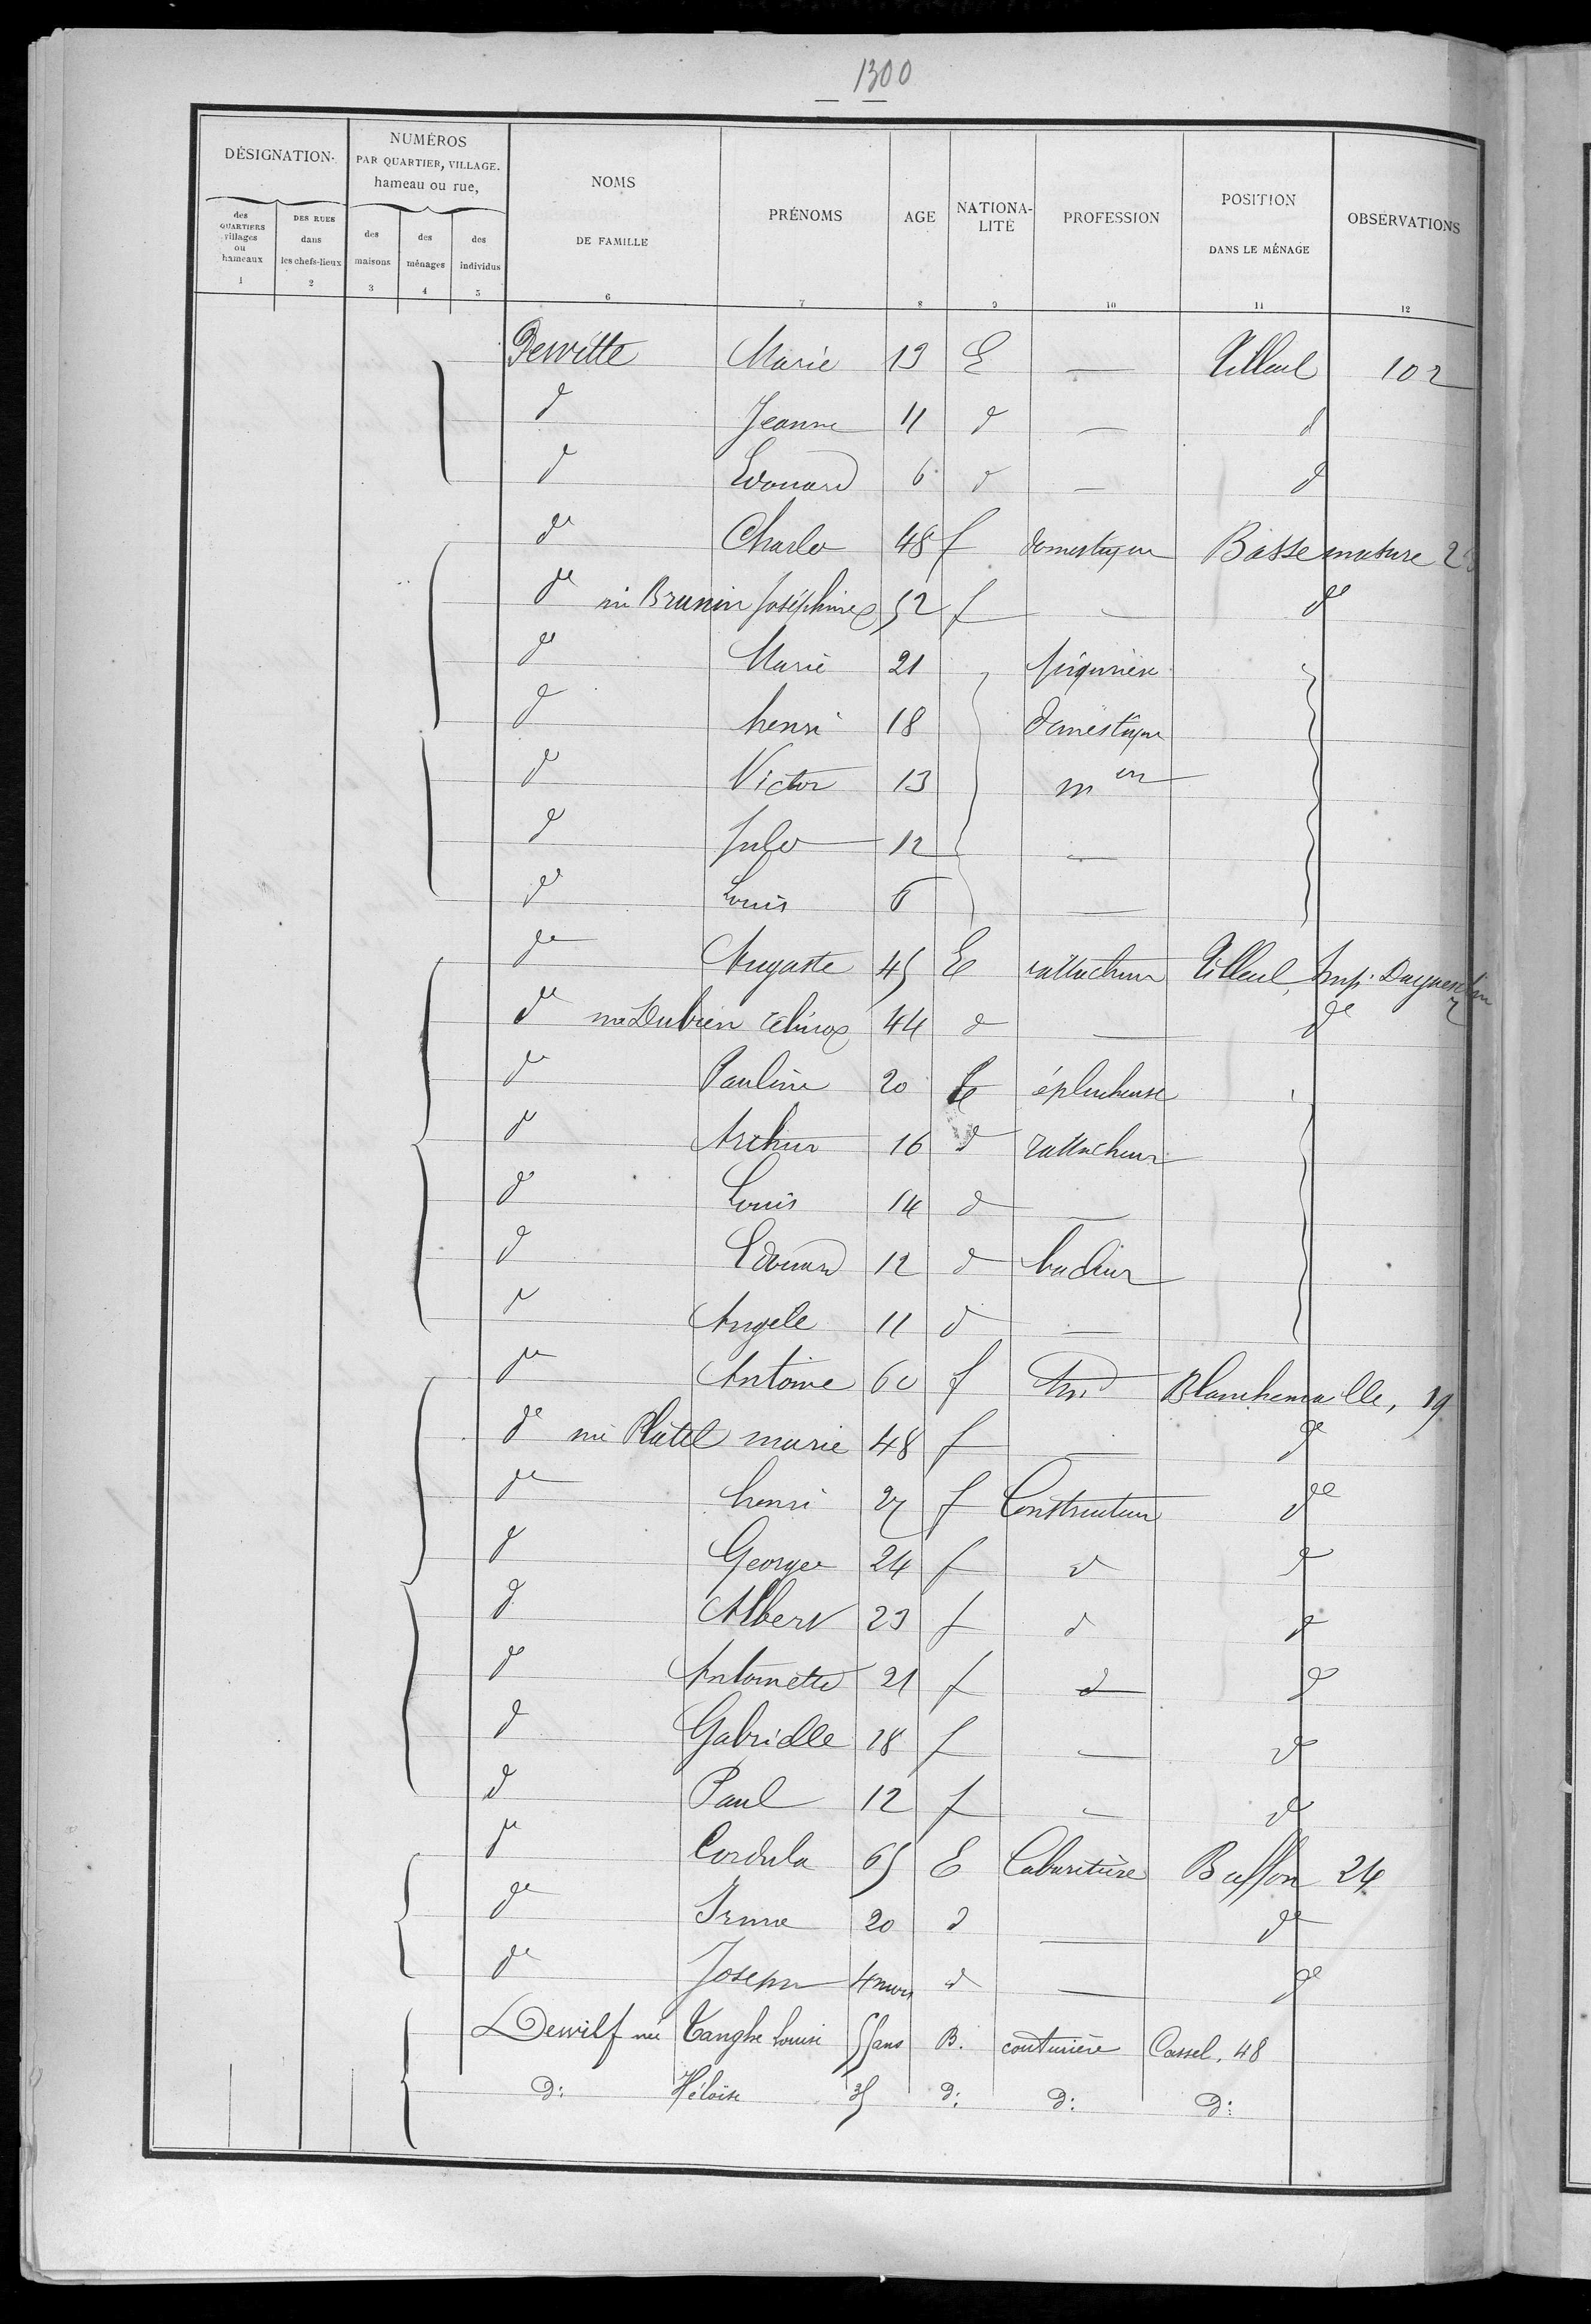 1300
DÉSIGNATION. NUMÉROS PAR QUARTIER, VILLAGE. hameau ou rue, NOMS DE FAMILLE PRÉNOMS AGE NATIONALITÉ PROFESSION POSITION DANS LE MÉNAGE OBSERVATIONS
des QUARTIERS villages ou hameaux DES RUES dans les chefs-lieux des maisons des ménages des individus
1 2 3 4 5 6 7 8 9 10 11 12
Dewitte Marie 13 E — Tilleul 102
d Jeanne 11 d — d
d Edouard 6 d — d
de Charles 48 f domestique Basse masure 2
de née Brunin Joséphine 52 f — de
de Marie 21 piqurière
d henri 18 domestique
d Victor 13 m on
d Jules 12 —
d Louis 6 —
de Auguste 45 E rattacheur Tilleul, Imp. Duguesclin
de née Dubien 44 d — de
de Pauline 20 E éplucheuse
d Arthur 16 d rattacheur
d Louis 14 d —
d Edouard 12 d bacleur
d Angele 11 d —
de Antoine 60 f Blanchemaille, 19
de née Platel marie 48 f — de
de henri 27 f Constructeur de
d George 24 f d d
d Albert 23 f d d
d Antoinette 21 f d d
d Gabrielle 18 f — d
d Paul 12 f — d
de Cordula 65 E Cabaretière Buffon 24
de Irma 20 d — de
de Joseph 4 mois d — de
Dewilf née Tanghe Louise 55 ans B. couturière Cassel, 48
d: Héloïse 35 d: d: d: